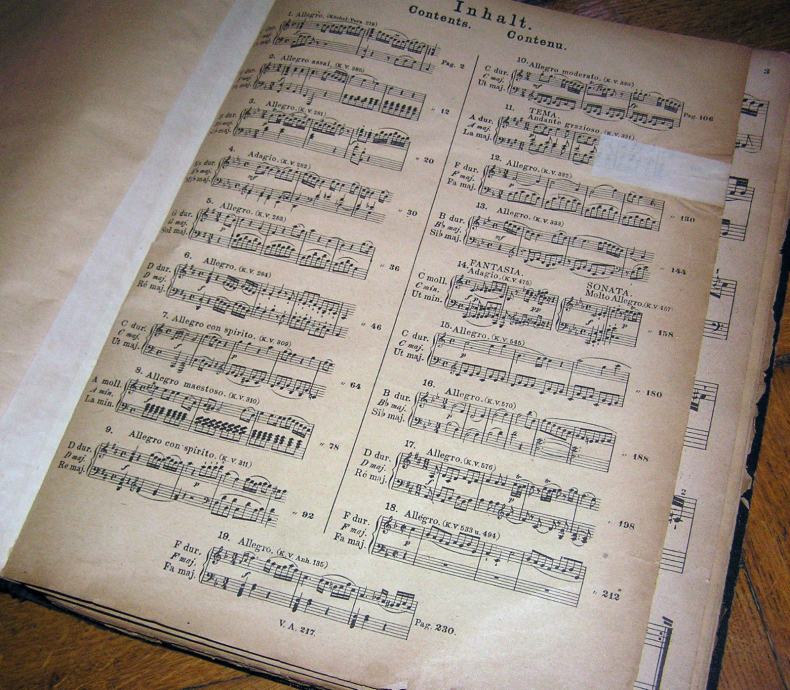 Inhalt.
Contents. Contenu.
1. Allegro. (Köchel-Verz. 279)
Pag. 2
2. Allegro assai. (K.V. 280)
" 12
3. Allegro. (K.V. 281)
" 20
4. Adagio. (K.V. 282)
" 30
5. Allegro. (K.V. 283)
G dur.
G maj.
Sol maj.
" 36
6. Allegro. (K.V. 284)
D dur.
D maj.
Ré maj.
" 46
7. Allegro con spirito. (K.V. 309)
C dur.
C maj.
Ut maj.
" 64
8. Allegro maestoso. (K.V. 310)
A moll.
A min.
La min.
" 78
9. Allegro con spirito. (K.V. 311)
D dur.
D maj.
Re maj.
" 92
10. Allegro moderato. (K.V. 330)
C dur.
C maj.
Ut maj.
Pag. 106
11. TEMA.
Andante grazioso. (K.V. 331)
A dur.
A maj.
La maj.
12. Allegro. (K.V. 332)
F dur.
F maj.
Fa maj.
" 130
13. Allegro. (K.V. 333)
B dur.
B♭ maj.
Si♭ maj.
" 144
14. FANTASIA.
Adagio. (K.V. 475)
SONATA.
Molto Allegro. (K.V. 457)
C moll.
C min.
Ut min.
" 158
15. Allegro. (K.V. 545)
C dur.
C maj.
Ut maj.
" 180
16. Allegro. (K.V. 570)
B dur.
B♭ maj.
Si♭ maj.
" 188
17. Allegro. (K.V. 576)
D dur.
D maj.
Ré maj.
" 198
18. Allegro. (K.V. 533 u. 494)
F dur.
F maj.
Fa maj.
" 212
19. Allegro. (K.V. Anh. 135)
F dur.
F maj.
Fa maj.
Pag. 230.
V. A. 217.
3